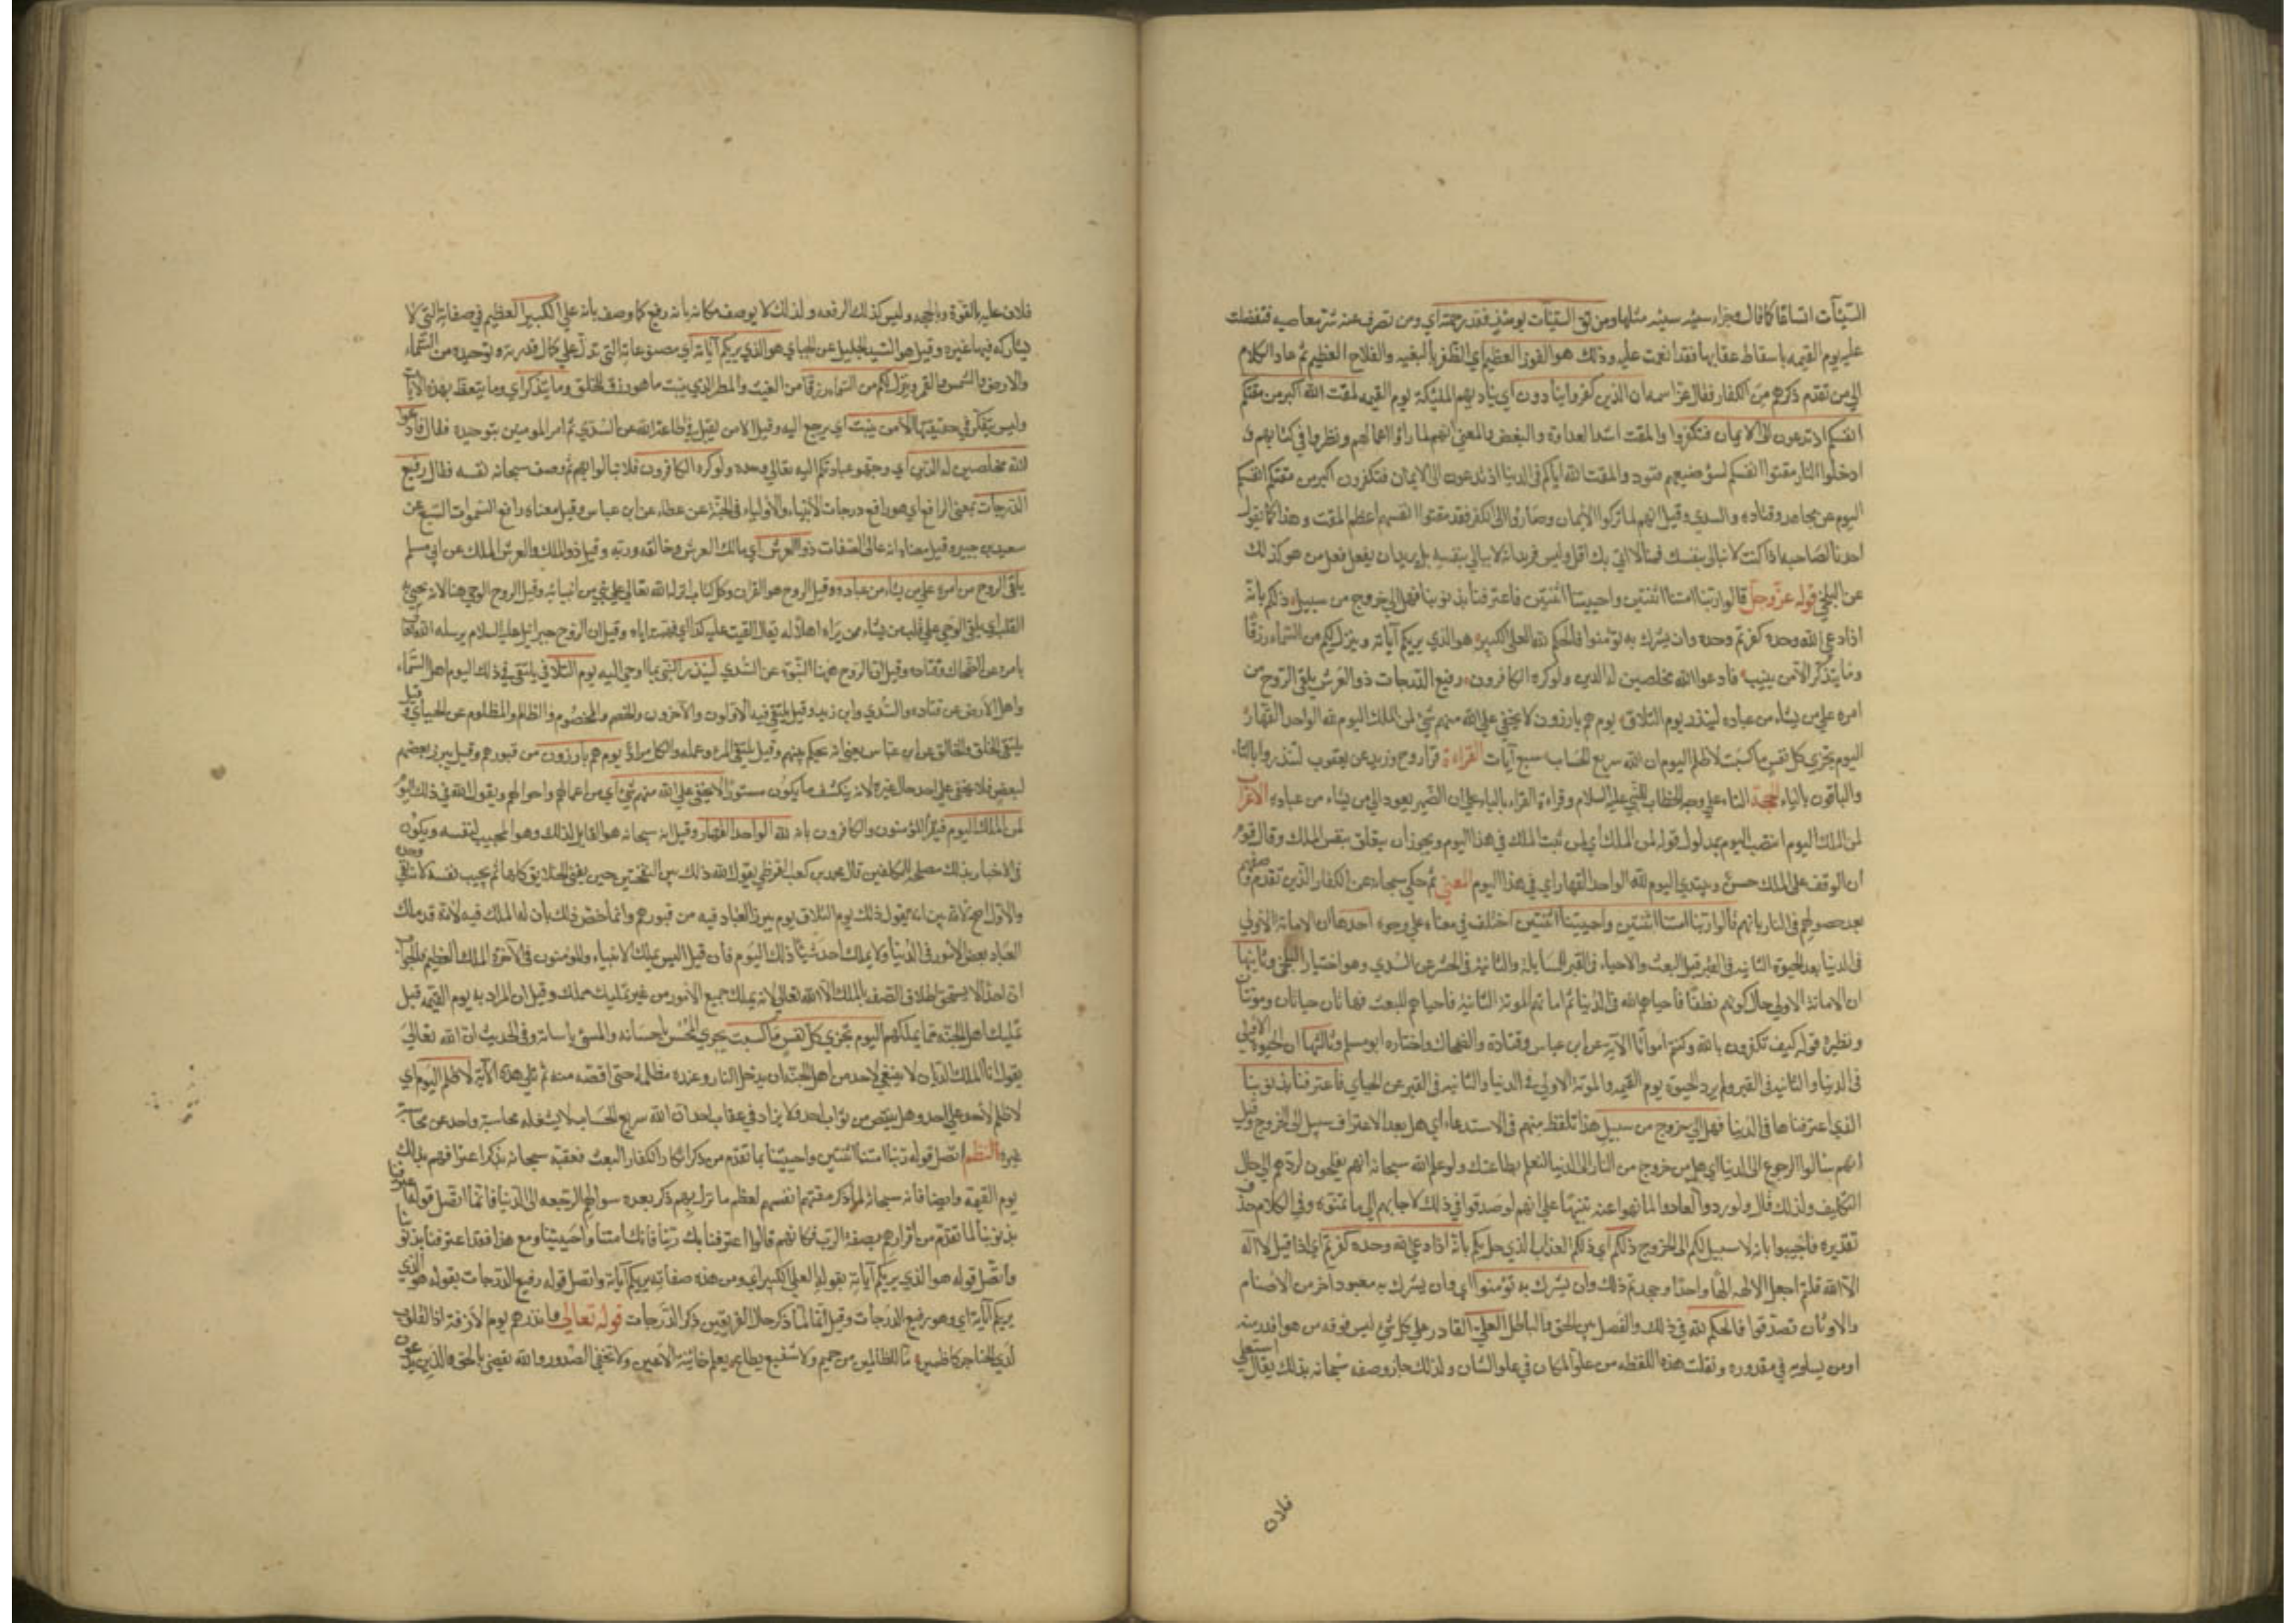 السيئات اتساعا كما قال وجزاء سيئة سيئة مثلها ومن تق السيئات يومئذ فقد رحمته اي ومن تصرف عنه شر معاصيه فتفضلت
عليه يوم القيمه باسقاط عقابها فقد انعمت عليه وذلك هو الفوز العظيم اي الظفر بالبغيه والفلاح العظيم ثم عاد الكلام
الي من تقدم ذكرهم من الكفار فقال عز اسمه ان الذين كفروا ينادون اي يناديهم الملئكة يوم القيمه لمقت الله اكبر من مقتكم
انفسكم اذ تدعون الى الايمان فتكفرون والمقت اشد العداوة والبغض والمعني انهم لما راوا اعمالهم ونظروا في كتابهم و
ادخلوا النار مقتوا انفسهم لسوء صنيعهم فنودوا لمقت الله اياكم في الدنيا اذ تدعون الى الايمان فتكفرون اكبر من مقتكم انفسكم
اليوم عن مجاهد وقتاده والسدي وقيل انهم لما تركوا الايمان وصاروا الى الكفر فقد مقتوا انفسهم اعظم المقت وهذا كما يقول
احدنا لصاحبه اذا كنت لا تبالي بنفسك فمبالاتي بك اقل وليس يريد انه لا يبالي بنفسه بل يريد ان يفعل فعل من هو كذلك
عن البلخي قوله عز وجل قالوا ربنا امتنا اثنتين واحييتنا اثنتين فاعترفنا بذنوبنا فهل الى خروج من سبيل ذلكم بانه
اذا دعي الله وحده كفرتم وحده وان يشرك به تؤمنوا فالحكم لله العلي الكبير هو الذي يريكم آياته وينزل لكم من السماء رزقا
وما يتذكر الا من ينيب فادعوا الله مخلصين له الدين ولو كره الكافرون رفيع الدرجات ذو العرش يلقي الروح من
امره على من يشاء من عباده لينذر يوم التلاق يوم هم بارزون لا يخفي على الله منهم شيء لمن الملك اليوم لله الواحد القهار
اليوم تجزي كل نفس ما كسبت لا ظلم اليوم ان الله سريع الحساب سبع آيات القراءة قرا روح وزيد عن يعقوب لتنذر بالتاء
والباقون بالياء الحجة التاء على وجه الخطاب للنبي عليه السلام وقراءة القراء بالياء على ان الضمير يعود الى من يشاء من عباده الاعراب
لمن الملك اليوم انتصب اليوم بمدلول قوله لمن الملك اي لمن ثبت الملك في هذا اليوم ويجوز ان يتعلق بنفس الملك وقال قوم
ان الوقف على الملك حسن ويبتدي اليوم لله الواحد القهار اي في هذا اليوم المعني ثم حكي سبحانه عن الكفار الذين تقدم وصفهم
بعد حصولهم في النار بانهم قالوا ربنا امتنا اثنتين واحييتنا اثنتين اختلف في معناه على وجوه احدها ان الاماتة الاولي
في الدنيا بعد الحيوة الثانيه في القبر قبل البعث والاحياء في القبر للمسايلة والثانية في الحشر عن السدي وهو اختيار البلخي وثانيها
ان الاماتة الاولي حال كونهم نطفا فاحياهم الله في الدنيا ثم اماتهم الموتة الثانية ثم احياهم للبعث فهاتان حياتان وموتتان
ونظيره قوله كيف تكفرون بالله وكنتم امواتا الآية عن ابن عباس وقتادة والضحاك واختاره ابو مسلم وثالثها ان الحيوة الاولي
في الدنيا والثانيه في القبر ولم يرد الحيوة يوم القيمه والموتة الاولي في الدنيا والثانيه في القبر عن الجبائي فاعترفنا بذنوبنا
التي اعترفناها في الدنيا فهل الى خروج من سبيل هذا تلطف منهم في الاستدعاء اي هل بعد الاعتراف سبيل الى الخروج وقيل
انهم سالوا الرجوع الى الدنيا اي هل من خروج من النار الى الدنيا لنعمل بطاعتك ولو علم الله سبحانه انهم يفلحون لردهم الى حال
التكليف ولذلك قال ولو ردوا لعادوا لما نهوا عنه تنبيها على انهم لو صدقوا في ذلك لاجابهم الى ما تمنوه وفي الكلام حذف
تقديره فاجيبوا بانه لا سبيل لكم الى الخروج ذلكم اي ذلكم العذاب الذي حل بكم بانه اذا دعي الله وحده كفرتم اي اذا قيل لا اله
الا الله قلتم اجعل الالهة الها واحدا وجحدتم ذلك وان يشرك به تؤمنوا اي وان يشرك به معبود آخر من الاصنام
والاوثان تصدقوا فالحكم لله في ذلك والفصل بين الحق والباطل العلي القادر على كل شيء ليس فوقه من هو اقدر منه
او من يساويه في مقدوره ونقلت هذه اللفظه من علو المكان في علو الشان ولذلك جاز وصفه سبحانه بذلك يقال استعلي
فلان
فلان عليه بالقوة وبالحجه وليس كذلك الرفعه ولذلك لا يوصف مكانه بانه رفيع كما وصف بانه علي الكبير العظيم في صفاته التي لا
يشاركه فيها غيره وقيل هو السيد الجليل عن الجبائي هو الذي يريكم آياته اي مصنوعاته التي تدل على كمال قدرته وتوحيده من السماء
والارض والشمس والقمر وينزل لكم من السماء رزقا من الغيث والمطر الذي ينبت ما هو رزق للخلق وما يتذكر اي وما يتعظ بهذه الآيات
وليس يتفكر في حقيقتها الا من ينيب اي يرجع اليه وقيل الا من يقبل الى طاعة الله عن السدي ثم امر المومنين بتوحيده فقال فادعوا
الله مخلصين له الدين اي وجهوا عبادتكم اليه تعالى وحده ولو كره الكافرون فلا تبالوا بهم ثم وصف سبحانه نفسه فقال رفيع
الدرجات بمعني الرافع اي هو رافع درجات الانبياء والاولياء في الجنة عن عطاء عن ابن عباس وقيل معناه رافع السموات السبع عن
سعيد بن جبير وقيل معناه انه عالي الصفات ذو العرش اي مالك العرش وخالقه وربه وقيل ذو الملك والعرش الملك عن ابي مسلم
يلقي الروح من امره على من يشاء من عباده وقيل الروح هو القران وكل كتاب انزله الله تعالى على نبي من انبيائه وقيل الروح الوحي هنا لانه يحيي به
القلب اي يلقي الوحي على قلب من يشاء ممن يراه اهلا له يقال القيت عليه كذا اي فهمته اياه وقيل ان الروح جبرائيل عليه السلام يرسله الله تعالى
بامره عن الضحاك وقتاده وقيل ان الروح ههنا النبوة عن السدي لينذر النبي بما اوحي اليه يوم التلاق يلتقي في ذلك اليوم اهل السماء
واهل الارض عن قتاده والسدي وابن زيد وقيل يلتقي فيه الاولون والآخرون والخصم والمخصوم والظالم والمظلوم عن الجبائي وقيل
يلتقي الخلق والخالق عن ابن عباس يعني انه يحكم بينهم وقيل يلتقي المرء وعمله والكل مراد يوم هم بارزون من قبورهم وقيل يبرز بعضهم
لبعض فلا يخفي على احد حال غيره لانه ينكشف ما يكون مستورا لا يخفي على الله منهم شيء اي من اعمالهم واحوالهم ويقول الله في ذلك اليوم
لمن الملك اليوم فيقر المؤمنون والكافرون بانه لله الواحد القهار وقيل انه سبحانه هو القايل لذلك وهو المجيب لنفسه ويكون
في الاخبار بذلك مصلحة للمكلفين قال محمد بن كعب القرظي يقول الله ذلك بين النفختين حين يفني الخلايق كلها ثم يجيب نفسه لانه بقي وحده
والاول اصح لانه بين انه يقول ذلك يوم التلاق يوم يبرز العباد فيه من قبورهم وانما خص ذلك بان له الملك فيه لانه قد ملك
العباد بعض الامور في الدنيا ولا يملك احد شيئا ذلك اليوم فان قيل اليس يملك الانبياء والمؤمنون في الآخرة الملك العظيم فالجواب
ان احدا لا يستحق اطلاق الصفه بالملك الا الله تعالى لانه يملك جميع الامور من غير تمليك مملك وقيل ان المراد به يوم القيمه قبل
تمليك اهل الجنة ما يملكهم اليوم تجزي كل نفس ما كسبت يجزي المحسن باحسانه والمسئ باساته وفي الحديث ان الله تعالى
يقول انا الملك الديان لا ينبغي لاحد من اهل الجنة ان يدخل النار وعنده مظلمة حتى اقصه منه ثم تلي هذه الآية لا ظلم اليوم اي
لا ظلم لاحد على احد وهل ينقص من ثواب احد ولا يزاد في عقاب احد ان الله سريع الحساب لا يشغله محاسبة واحد عن محاسبة
غيره النظم اتصل قوله ربنا امتنا اثنتين واحييتنا بما تقدم من ذكر انكار الكفار البعث فعقبه سبحانه بذكر اعترافهم بذلك
يوم القيمة وايضا فانه سبحانه لما ذكر مقتهم انفسهم لعظم ما نزل بهم ذكر بعده سوالهم الرجعه الى الدنيا فانما اتصل قوله فاعترفنا
بذنوبنا لما تقدم من اقرارهم بصفة الرب فكانهم قالوا اعترفنا بك ربنا فانك امتنا واحييتنا ومع هذا فقد اعترفنا بذنوبنا
واتصل قوله هو الذي يريكم آياته بقوله العلي الكبير اي ومن هذه صفاته يريكم آياته واتصل قوله رفيع الدرجات بقوله هو الذي
يريكم آياته اي وهو رفيع الدرجات وقيل انه لما ذكر حال الفريقين ذكر الدرجات قوله تعالى وانذرهم يوم الآزفة اذ القلوب
لدي الحناجر كاظمين ما للظالمين من حميم ولا شفيع يطاع يعلم خائنة الاعين وما تخفي الصدور والله يقضي بالحق والذين يدعون